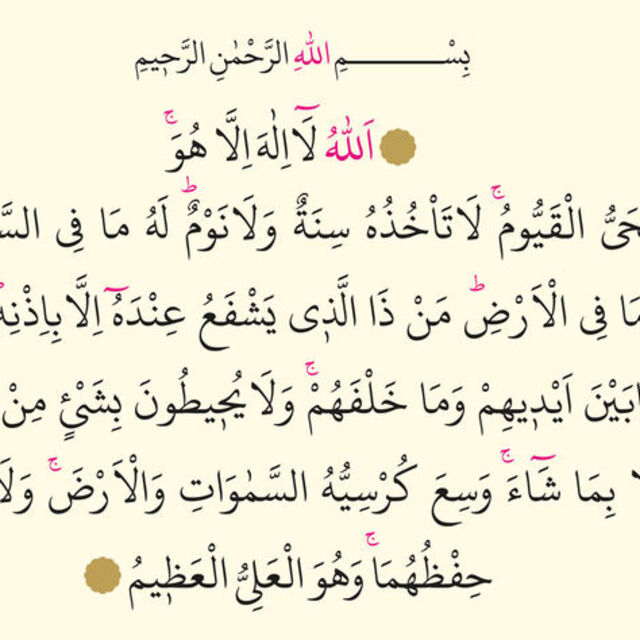 بِسْمِ اللهِ الرَّحْمٰنِ الرَّحٖيمِ
اَللّٰهُ لَٓا اِلٰهَ اِلَّا هُوَۚ
الْقَيُّومُۚ لَا تَاْخُذُهُ سِنَةٌ وَلَا نَوْمٌؕ لَهُ مَا فِى
فِى الْاَرْضِؕ مَنْ ذَا الَّذٖى يَشْفَعُ عِنْدَهُٓ اِلَّا بِاِذْنِهٖ
بَيْنَ اَيْدٖيهِمْ وَمَا خَلْفَهُمْۚ وَلَا يُحٖيطُونَ بِشَئٍْ مِنْ
بِمَا شَٓاءَۚ وَسِعَ كُرْسِيُّهُ السَّمٰوَاتِ وَالْاَرْضَۚ وَلَا
حِفْظُهُمَاۚ وَهُوَ الْعَلِىُّ الْعَظٖيمُ